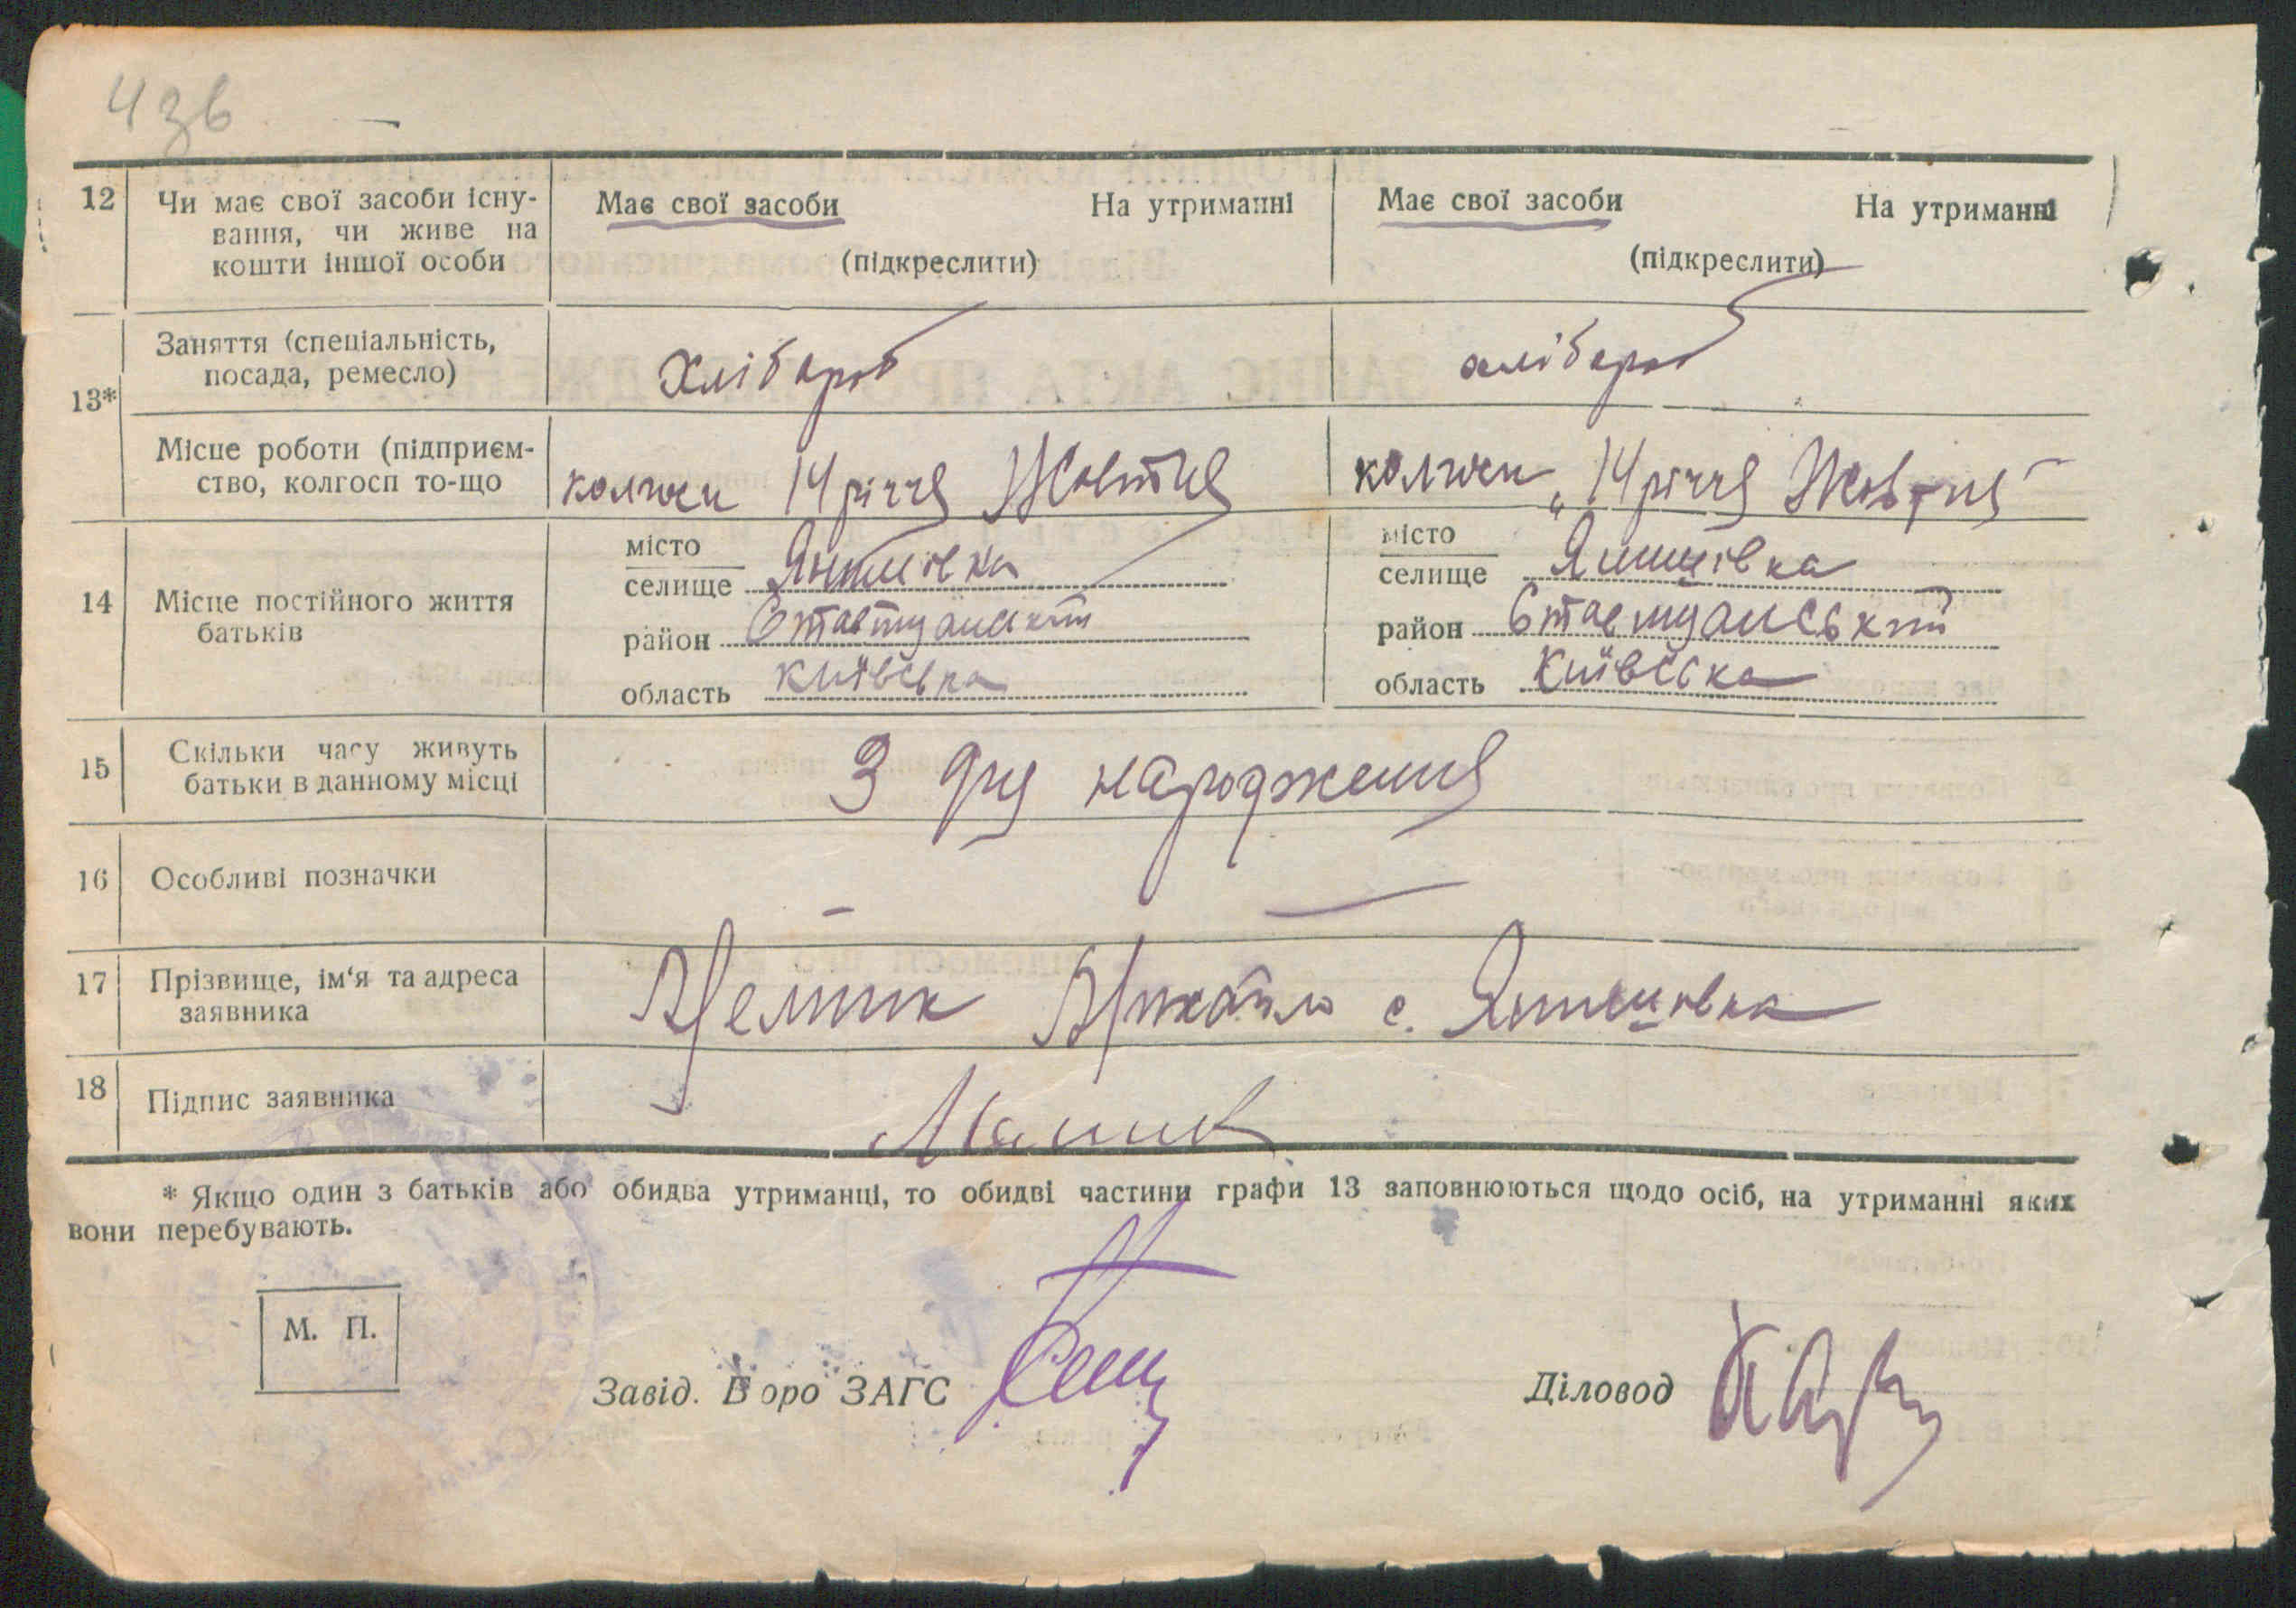 4 зв
12 Чи має свої засоби існу-
вання, чи живе на
кошти іншої особи
Має свої засоби На утриманні
(підкреслити)
Має свої засоби На утриманні
(підкреслити)
13*
Заняття (спеціальність,
посада, ремесло)
Хлібороб
хлібороб
Місце роботи (підприєм-
ство, колгосп то-що
14 річчя Жовтня
„14 річчя Жовтня"
14 Місце постійного життя
батьків
місто
селище
район Ставищанський
область Київська
місто
селище
район Ставищанський
область Київська
15 Скільки часу живуть
батьки в данному місці
З дня народження
16 Особливі позначки
17 Прізвище, ім'я та адреса
заявника
Михайло с.
18 Підпис заявника
* Якщо один з батьків або обидва утриманці, то обидві частини графи 13 заповнюються щодо осіб, на утриманні яких
вони перебувають.
М. П.
Завід. Бюро ЗАГС
Діловод